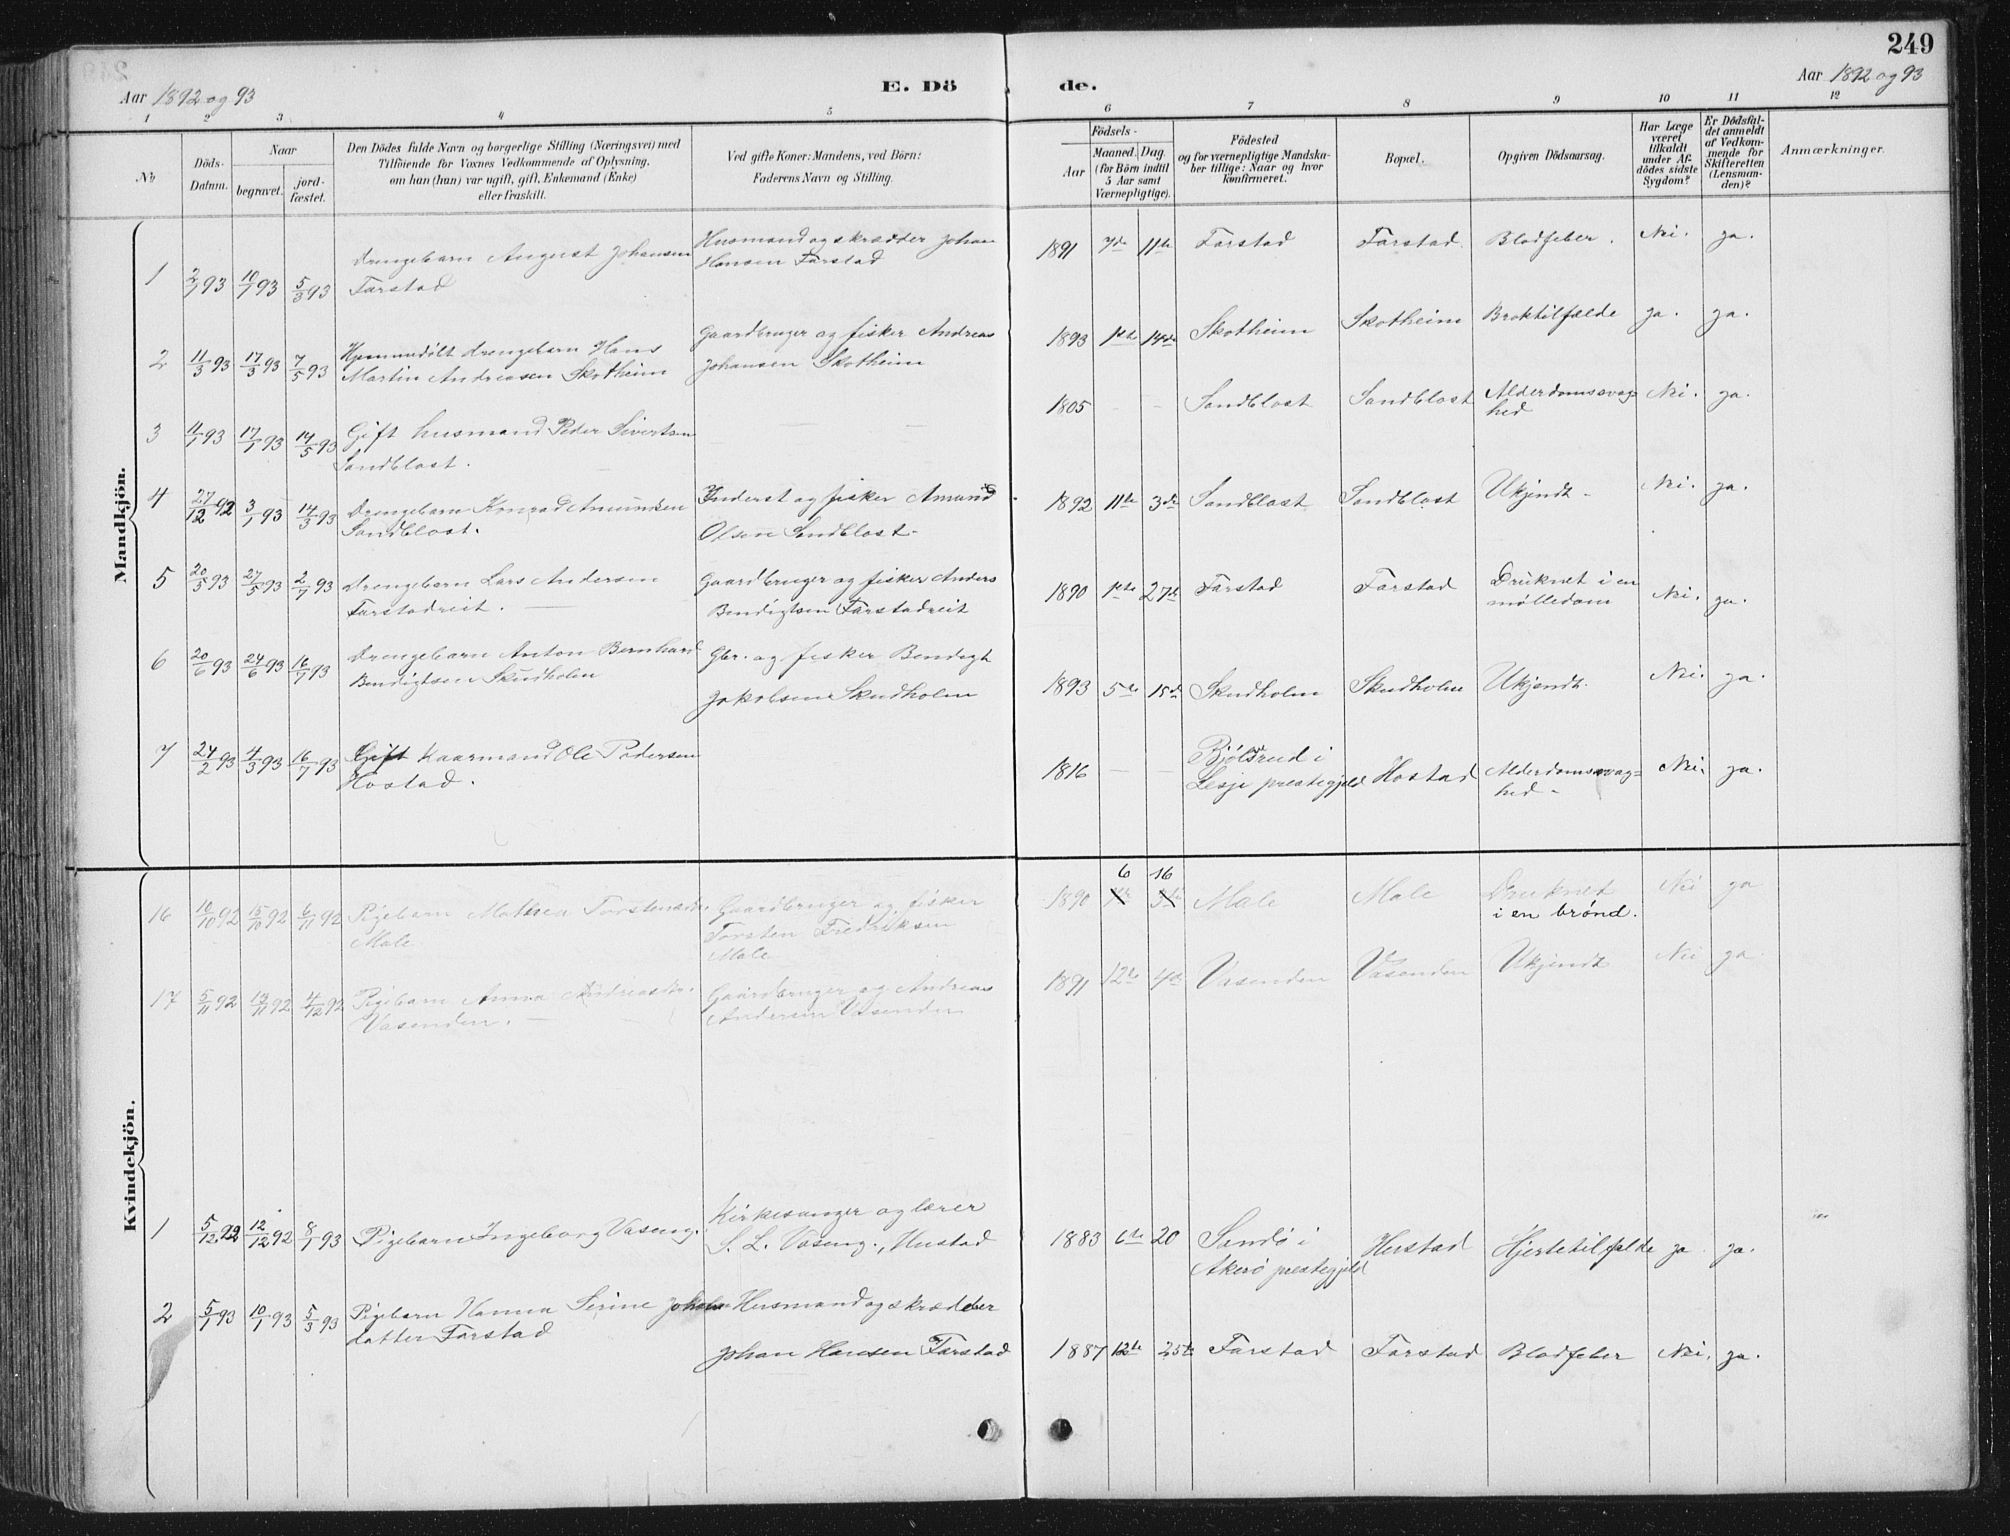 249
Aar 1892 og 93
E. Dö
de.
Aar 1892 og 93
1 2 3 4 5 6 7 8 9 10 11 12
No
Döds-
Datum.
Naar
begravet.
jord-
fæstet.
Den Dödes fulde Navn og borgerlige Stilling (Næringsvei) med
Tilföiende for Voxnes Vedkommende af Oplysning,
om han (hun) var ugift, gift, Enkemand (Enke)
eller fraskilt.
Ved gifte Koner: Mandens, ved Börn:
Faderens Navn og Stilling.
Födsels-
Aar
Maaned. Dag.
(for Börn indtil
5 Aar samt
Værnepligtige).
Födested
og for værnepligtige Mandska-
ber tillige: Naar og hvor
konfirmeret.
Bopæl.
Opgiven Dödsaarsag.
Har Læge
været
tilkaldt
under Af-
dödes sidste
Sygdom?
Er Dödsfal-
det anmeldt
af Vedkom-
mende for
Skifteretten
(Lensman-
den)?
Anmærkninger.
Mandkjön.
1 2/1 93 10/1 93 5/3 93 Drengebarn August Johansen
Farstad
Husmand og skrædder Johan
Hansen Farstad
1891 7de 11te Farstad Farstad Blodfeber. Nei. ja.
2 11/3 93 17/3 93 7/5 93 Hjemmedöbt drengebarn Hans
Martin Andreasen Skotheim
Gaardbruger og fisker Andreas
Johansen Skotheim
1893 1ste 14de Skotheim Skotheim Broktilfælde ja. ja.
3 11/1 93 17/1 93 14/5 93 Gift husmand Peder Sivertsen
Sandblost.
1805 Sandblost Sandblost Alderdomssvag=
hed Nei. ja.
4 27/12 92 3/1 93 14/3 93 Drengebarn Konrad Amundsen
Sandblost.
Inderst og fisker Amund
Olsen Sandblost.
1892 11te 3de Sandblost Sandblost Ukjendt. Nei. ja.
5 20/5 93 27/5 93 2/7 93 Drengebarn Lars Andersen
Farstadreit.
Gaardbruger og fisker Anders
Bendigtsen Farstadreit
1890 1ste 27de Farstad Farstad Druknet i en
mølledam Nei. ja.
6 20/6 93 24/6 93 16/7 93 Drengebarn Anton Bernhard
Bendigtsen Skudholm
Gbr. og fisker Bendigt
Jakobsen Skudholm
1893 5te 15de Skudholm Skudholm Ukjendt. Nei. ja.
7 24/2 93 4/3 93 16/7 93 Gift kaarmand Ole Pedersen
Hostad.
1816 Bjölsrud i
Lesje prestegjeld Hostad Alderdomssvag=
hed. Nei. ja.
Kvindekjön.
16 10/10 92 15/10 92 6/11 92 Pigebarn Mathea Torstensdtr.
Male
Gaardbruger og fisker
Torsten Fredriksen
Male
6 16
1890 Male Male Druknet
i en brønd. Nei ja
17 5/11 92 12/11 92 4/12 92 Pigebarn Anna Andreasdtr.
Vasenden.
Gaardbruger og Andreas
Andersen Vasenden
1891 12te 4de Vasenden Vasenden Ukjendt Nei ja
1 5/12 92 12/12 92 8/1 93 Pigebarn Ingeborg Vaseng.
Kirkesanger og lærer
S. L. Vaseng, Hustad
1883 6te 20 Sandö i
Akerö prestegjeld Hustad Hjertetilfælde ja ja.
2 5/1 93 10/1 93 5/3 93 Pigebarn Hanna Serine Johans
datter Farstad
Husmand og skrædder
Johan Hansen Farstad
1887 12te 25de Farstad Farstad Blodfeber Nei. ja.